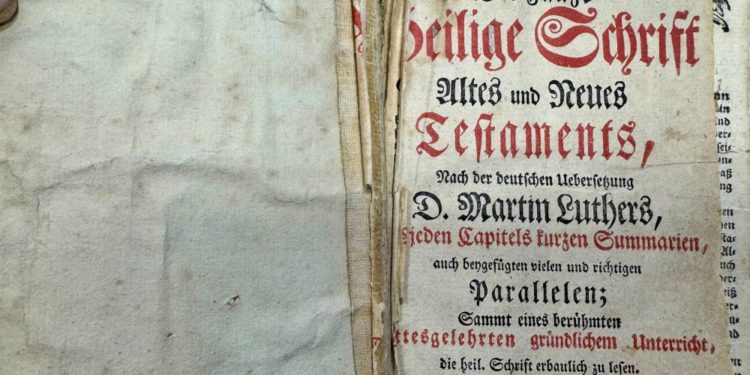 Heilige Schrift
Altes und Neues
Testaments,
Nach der deutschen Uebersetzung
D. Martin Luthers,
jeden Capitels kurzen Summarien,
auch beygefügten vielen und richtigen
Parallelen;
Sammt eines berühmten
ttesgelehrten gründlichem Unterricht,
die heil. Schrift erbaulich zu lesen.